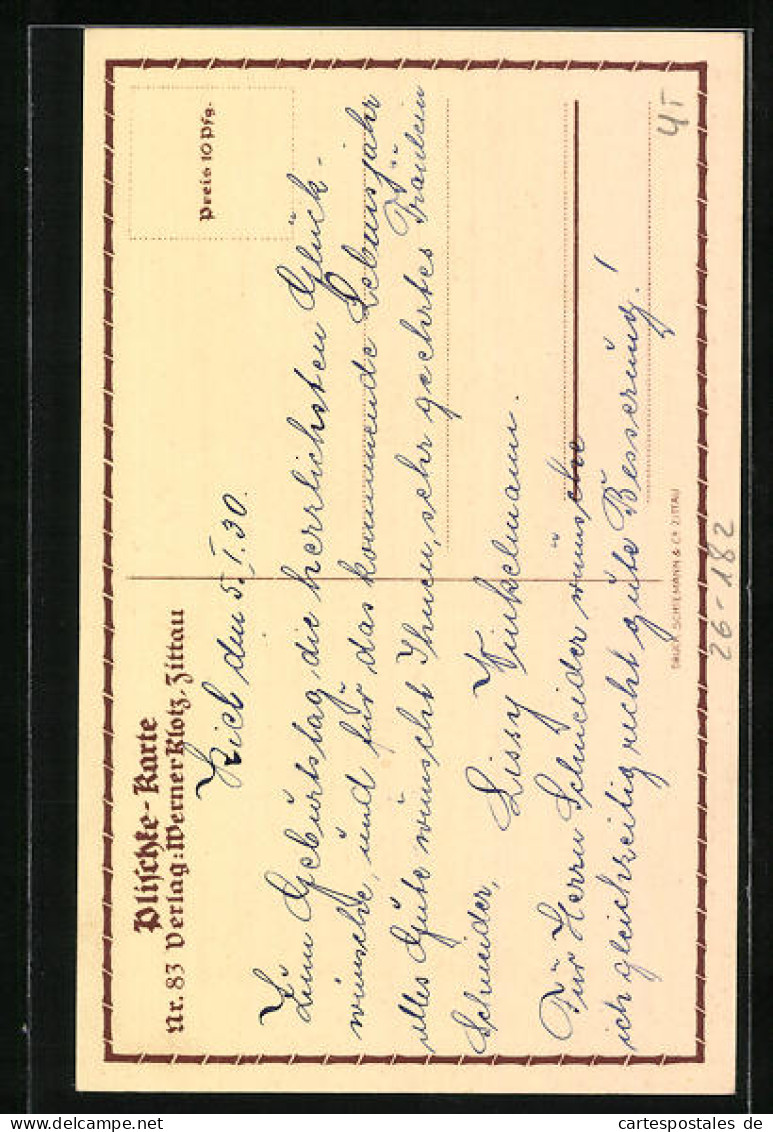 Plischke-Karte
Nr. 83 Verlag: Werner Klotz, Zittau
Preis 10 Pfg.
Kiel den 5.I.30.
Zum Geburtstag die herrlichsten Glück-
wünsche, und für das kommende Lebensjahr
alles Gute wünscht Ihnen, sehr geehrtes Fräulein
Schneider,
Lissy Winkelmann.
Für Herrn Schneider wünsche
ich gleichzeitig recht gute Besserung!
DRUCK: SCHIEMANN & Co. ZITTAU
26-182
cartespostales de